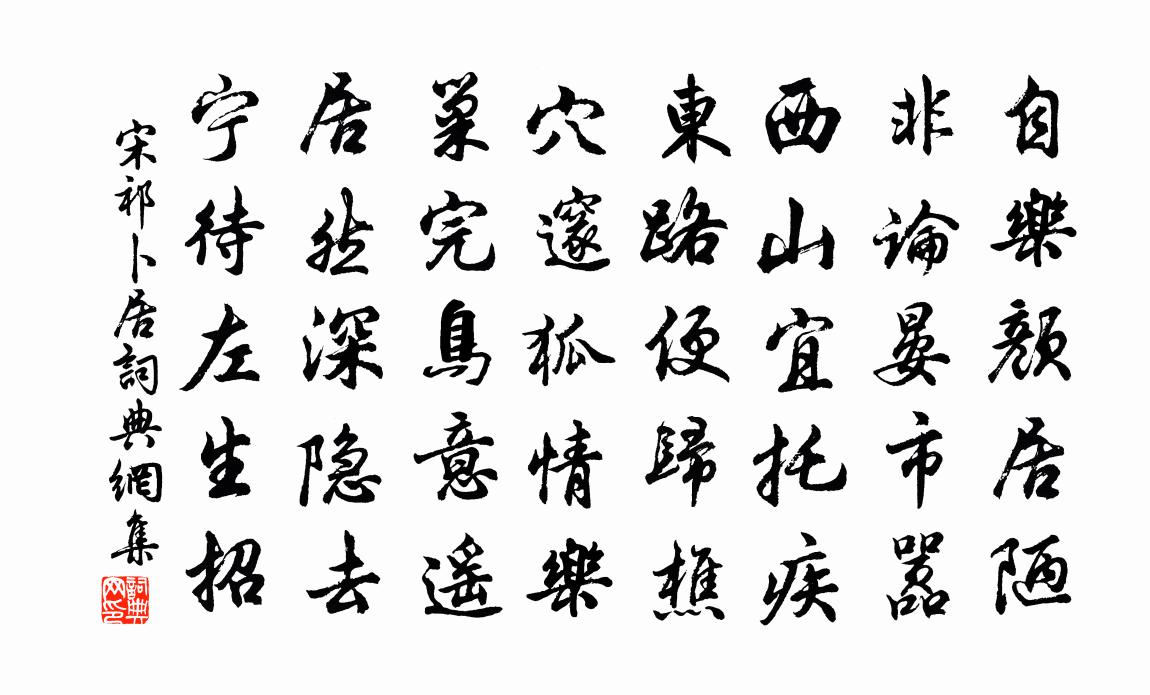 自樂顔居陋
非論晏市嚣
西山宜托疾
東路便歸樵
穴邃狐情樂
巢完鳥意遥
居然深隐去
宁待左生招
宋祁卜居詞典網集
詞典网印